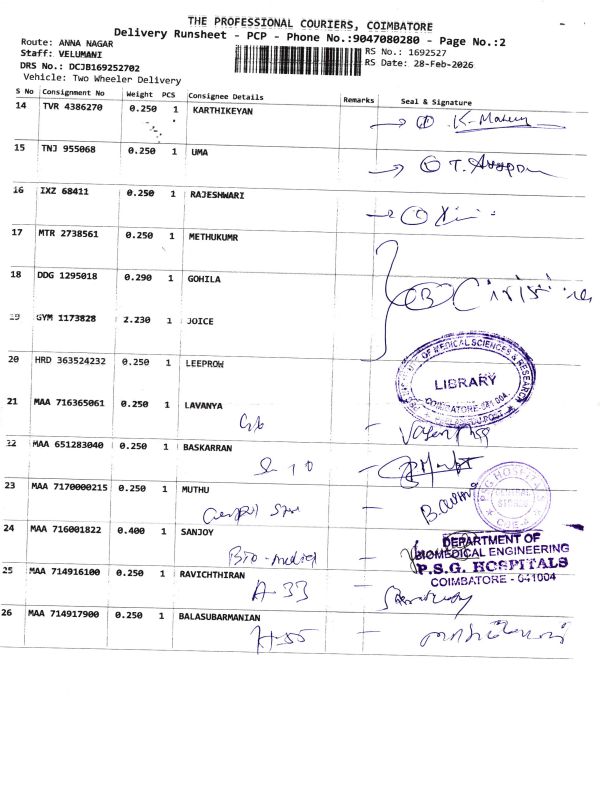 THE PROFESSIONAL COURIERS, COIMBATORE
Delivery Runsheet - PCP - Phone No.:9047080280 - Page No.:2
Route: ANNA NAGAR
Staff: VELUMANI
DRS No.: DCJB169252702
Vehicle: Two Wheeler Delivery
RS No.: 1692527
RS Date: 28-Feb-2026
S No Consignment No Weight PCS Consignee Details Remarks Seal & Signature
14 TVR 4386270 0.250 1 KARTHIKEYAN
15 TNJ 955068 0.250 1 UMA
16 IXZ 68411 0.250 1 RAJESHWARI
17 MTR 2738561 0.250 1 METHUKUMR
18 DDG 1295018 0.290 1 GOHILA
19 GYM 1173828 2.230 1 JOICE
20 HRD 363524232 0.250 1 LEEPROW
OF MEDICAL SCIENCES & RESEARCH
LIBRARY
COIMBATORE-641 004
21 MAA 716365061 0.250 1 LAVANYA
22 MAA 651283040 0.250 1 BASKARRAN
23 MAA 7170000215 0.250 1 MUTHU
P.S.G HOSPITALS
CENTRAL STORES
24 MAA 716001822 0.400 1 SANJOY
Bio-medical
DEPARTMENT OF
BIOMEDICAL ENGINEERING
P.S.G. HOSPITALS
COIMBATORE - 641004
25 MAA 714916100 0.250 1 RAVICHTHIRAN
A-33
26 MAA 714917900 0.250 1 BALASUBARMANIAN